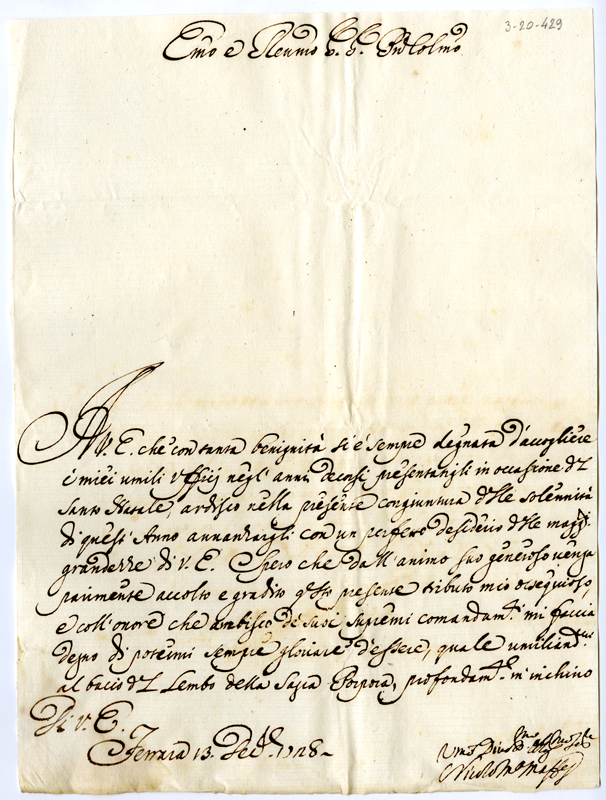 3-20-429
Emo e Reumo S. S. Pne Colmo
A V. E. che con tanta benignità si è sempre degnata d'accogliere
i miei umili ufficij negl' anni decorsi presentatigli in occasione del
Santo Natale ardisco nella presente congiuntura delle solennità
di quest' Anno avvanzargli con un perfetto desiderio delle magg.ri
grandezze di V. E. Spero che dall' animo suo generoso venga
parimente accolto e gradito qsto presente tributo mio ossequioso,
e coll' onore che ambisco de' suoi supremi comandam.ti mi faccia
degno di potermi sempre gloriare d'essere, quale umiliand.mi
al bacio del Lembo della Sagra Porpora, profondam.te m'inchino
Di V. E.
Ferrara 13. Dec. 1728
Nicolò Ma Maffei